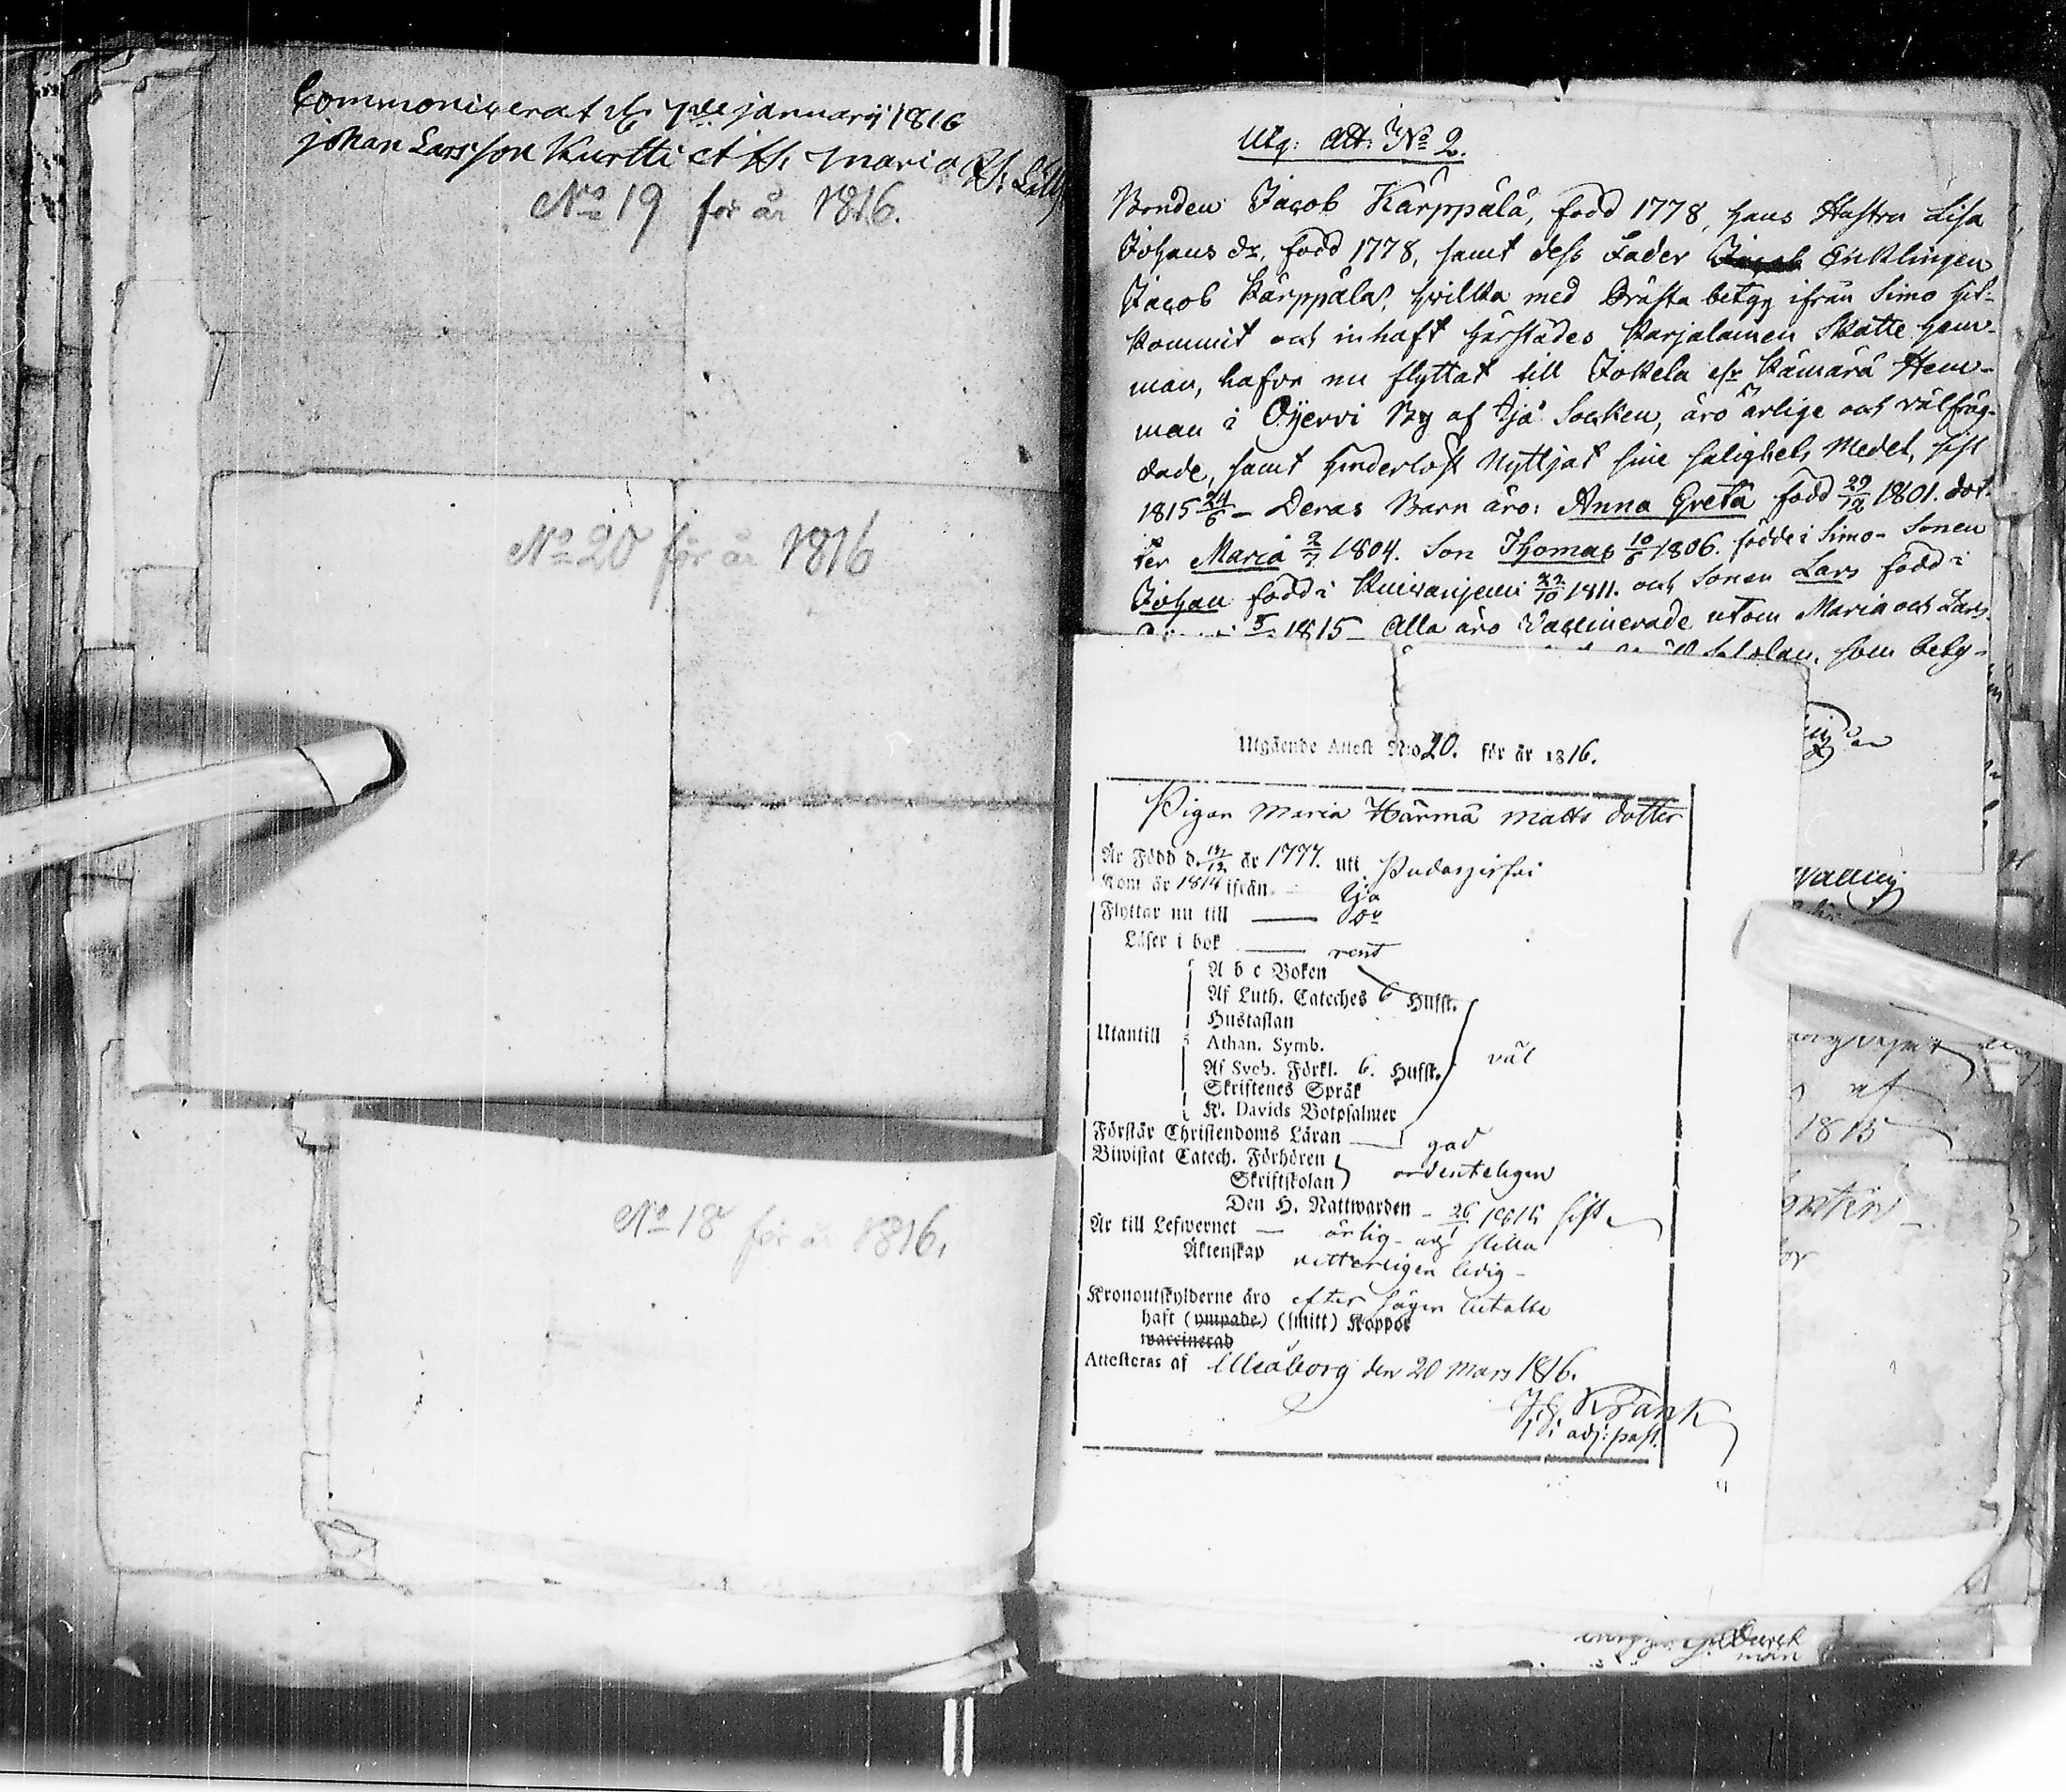 Commonicerat d 7de januarij 1816
johan Larsson Kurtti et H. Maria
No 19 för år 1816.
No 20 för år 1816
No 18 för år 1816.
Utg: Att: No 2.
Bonden Jacob Kärppälä, född 1778, hans Hustru Lisa
Johans dr, född 1778, samt dess Fader Enklingen
Jacob Kärppälä, hvilka med Prästa betyg ifrån Simo hit-
kommit och inhaft härstädes Karjalainen Skatte hem-
man, hafva nu flyttat till Jokela elr Kämärä Hem-
man i Oijervi By af Ijå Socken, äro ärlige och välfräg-
dade, samt hinderlöst Nyttjat sine salighets Medel, sist
1815 24/6 - Deras Barn äro: Anna Greta född 29/12 1801. dot-
ter Maria 2/7 1804. Son Thomas 10/6 1806. födde i Simo - Sonen
Johan född i Kuivaniemi 22/10 1811. och Sonen Lars född i
1815 - Alla äro Vaccinerade utom Maria och Lars
som bety-
Utgående Attest No 20. för år 1816.
Pigan Maria Härmä Matts dotter
Är Född d. 12 år 1777. uti Pudasjerfvi
Kom år 1814 ifrån Ijå
Flyttar nu till — Do
Läser i bok — rent
A b c Boken
Af Luth. Cateches 6 Hufst.
Hustaflan
Utantill Athan. Symb. väl
Af Sveb. Förkl. 6. Hufst.
Skriftenes Språk
K. Davids Botpsalmer
Förstår Christendoms Läran — god
Biwistat Catech. Förhören ordenteligen
Skriftskolan
Den H. Nattwarden - 26/1 1815 sist
Är till Lefwernet — ärlig och stilla
Äktenskap vitterligen ledig -
Kronoutskylderne äro efter sägen betalte
haft (ympade) (smitt) Koppor
waccinerad
Attesteras af Uleåborg den 20 Mars 1816.
Frank
adj: past.
1815